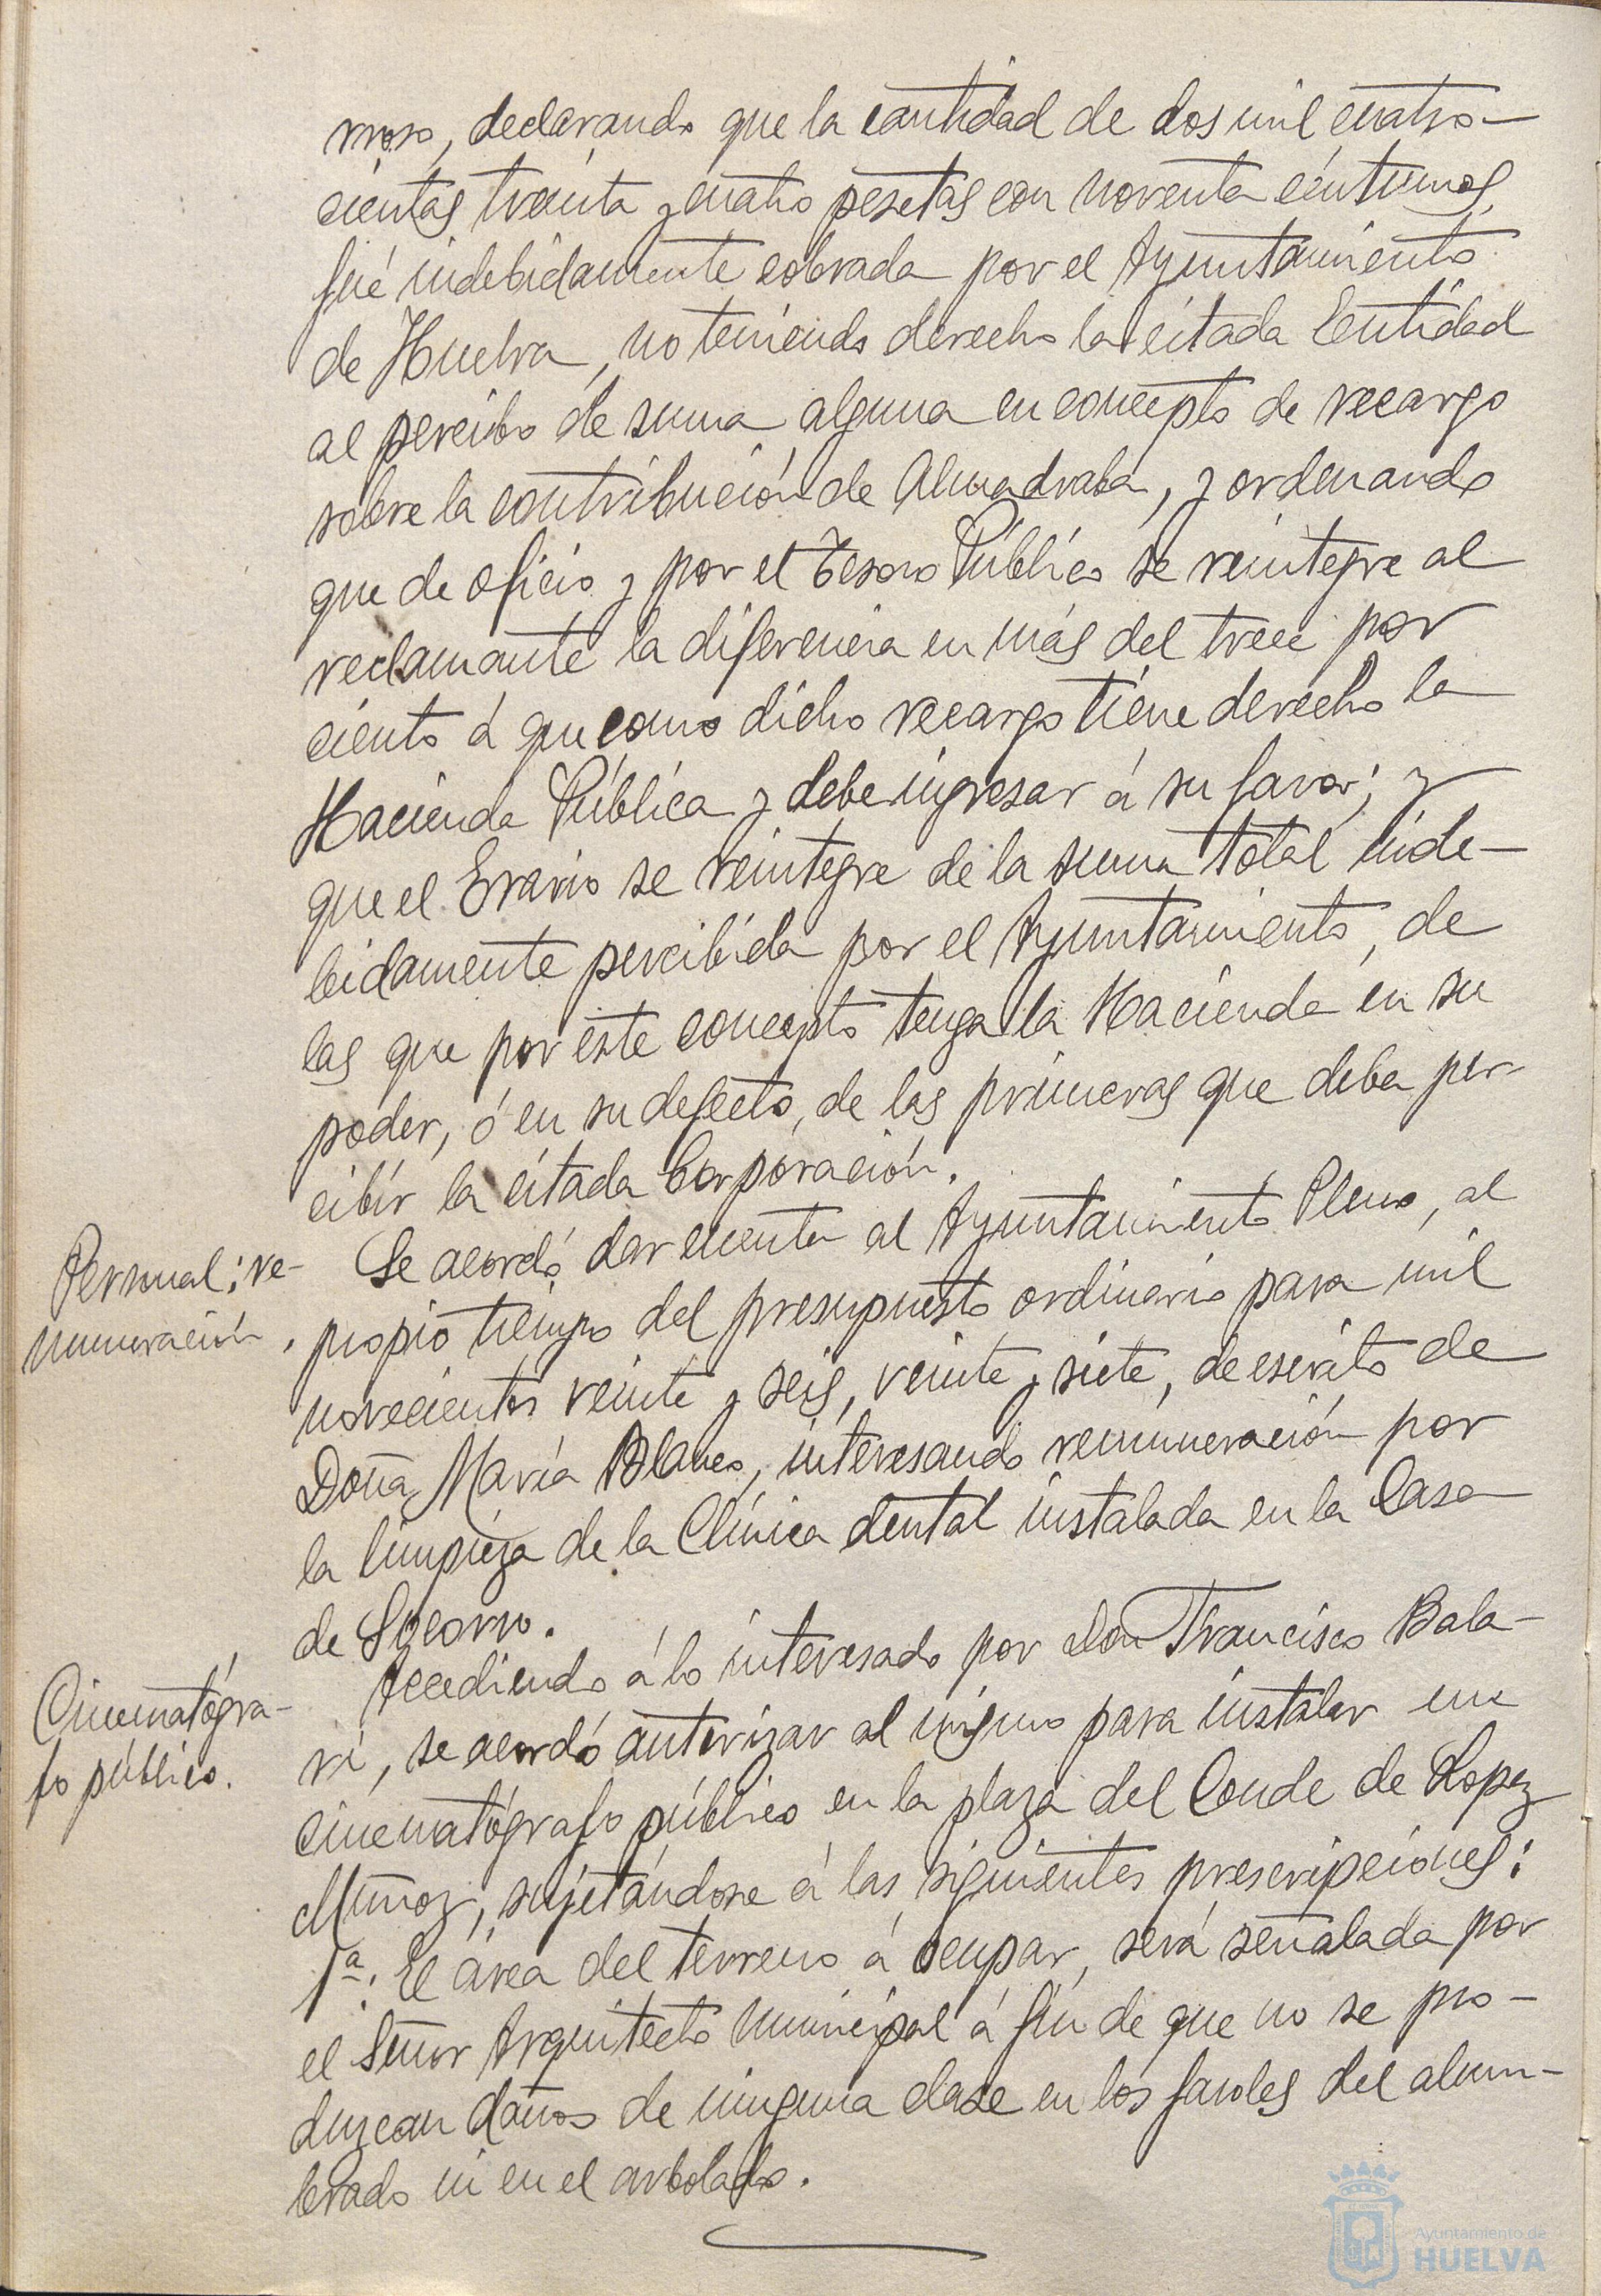 moso, declarando que la cantidad de dos mil cuatro-
cientas treinta y cuatro pesetas con noventa céntimos,
fué indebidamente cobrada por el Ayuntamiento
de Huelva, no teniendo derecho la citada Entidad
al percibo de suma alguna en concepto de recargo
sobre la contribución de Almadraba, y ordenando
que de oficio y por el Tesoro Público se reintegre al
reclamante la diferencia en más del trece por
ciento á que como dicho recargo tiene derecho la
Hacienda Pública y debe ingresar á su favor; y
que el Erario se reintegre de la suma total inde-
bidamente percibida por el Ayuntamiento, de
las que por este concepto tenga la Hacienda en su
poder, ó en su defecto, de las primeras que deba per-
cibir la citada Corporación.
Personal; re-
muneración.
Se acordó dar cuenta al Ayuntamiento Pleno, al
propio tiempo del presupuesto ordinario para mil
novecientos veinte y seis, veinte y siete, de escrito de
Doña María Blanco, interesando remuneración por
la limpieza de la Clínica dental instalada en la Casa
de Socorro.
Cinematógra-
fo público.
Accediendo á lo interesado por Don Francisco Bala-
ri, se acordó autorizar al mismo para instalar un
cinematógrafo público en la plaza del Conde de Lopez
Muñoz, sujetándose á las siguientes prescripciones:
1ª. El área del terreno á ocupar, será señalada por
el Señor Arquitecto Municipal á fin de que no se pro-
duzcan daños de ninguna clase en los faroles del alum-
brado ni en el arbolado.
Ayuntamiento de
HUELVA